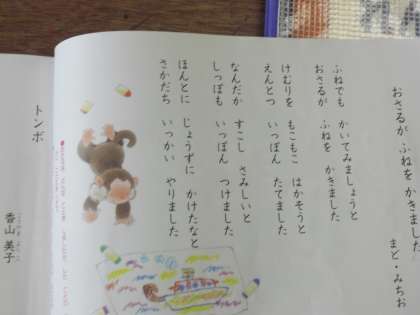 おさるが ふねを かきました
まど・みちお
ふねでも かいてみましょうと
おさるが ふねを かきました
けむりを もこもこ はかそうと
えんとつ いっぽん たてました
なんだか すこし さみしいと
しっぽも いっぽん つけました
ほんとに じょうずに かけたなと
さかだち いっかい やりました
トンボ
香山 美子